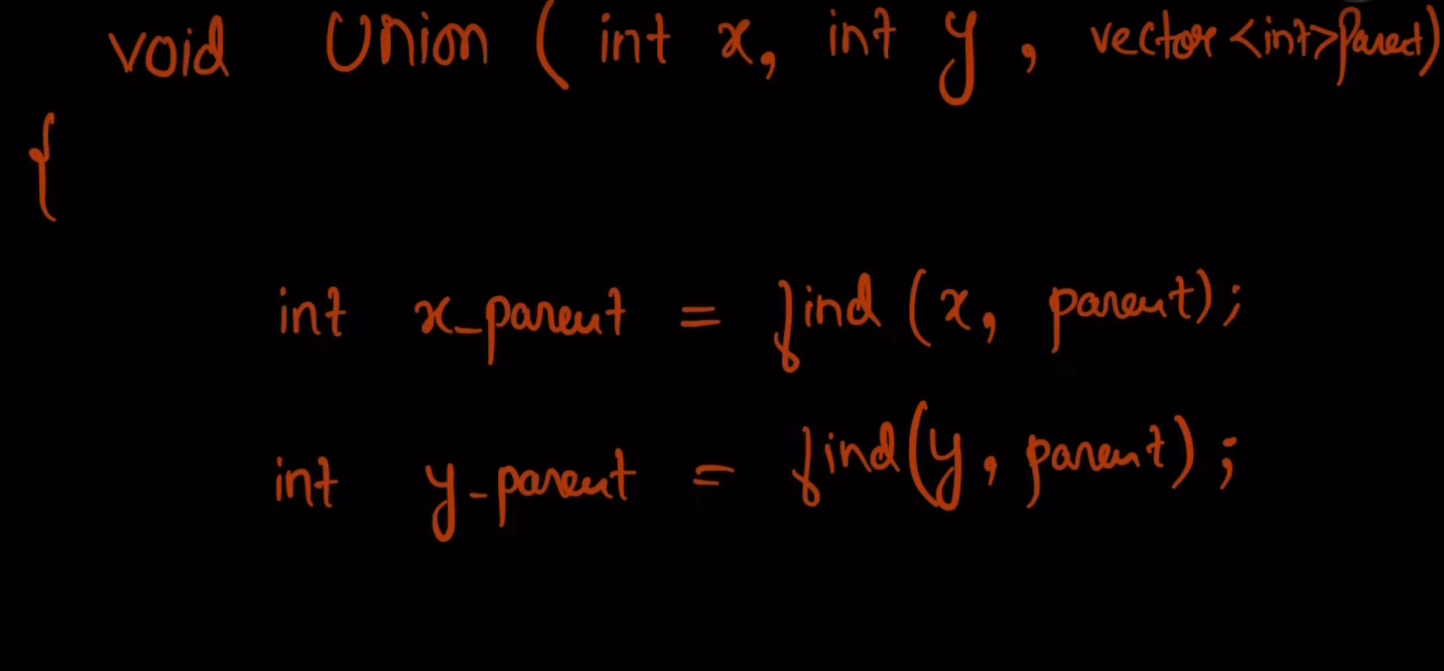 void Union ( int x, int y , vector <int>parent)
{
int x_parent = find (x, parent);
int y_parent = find(y, parent);